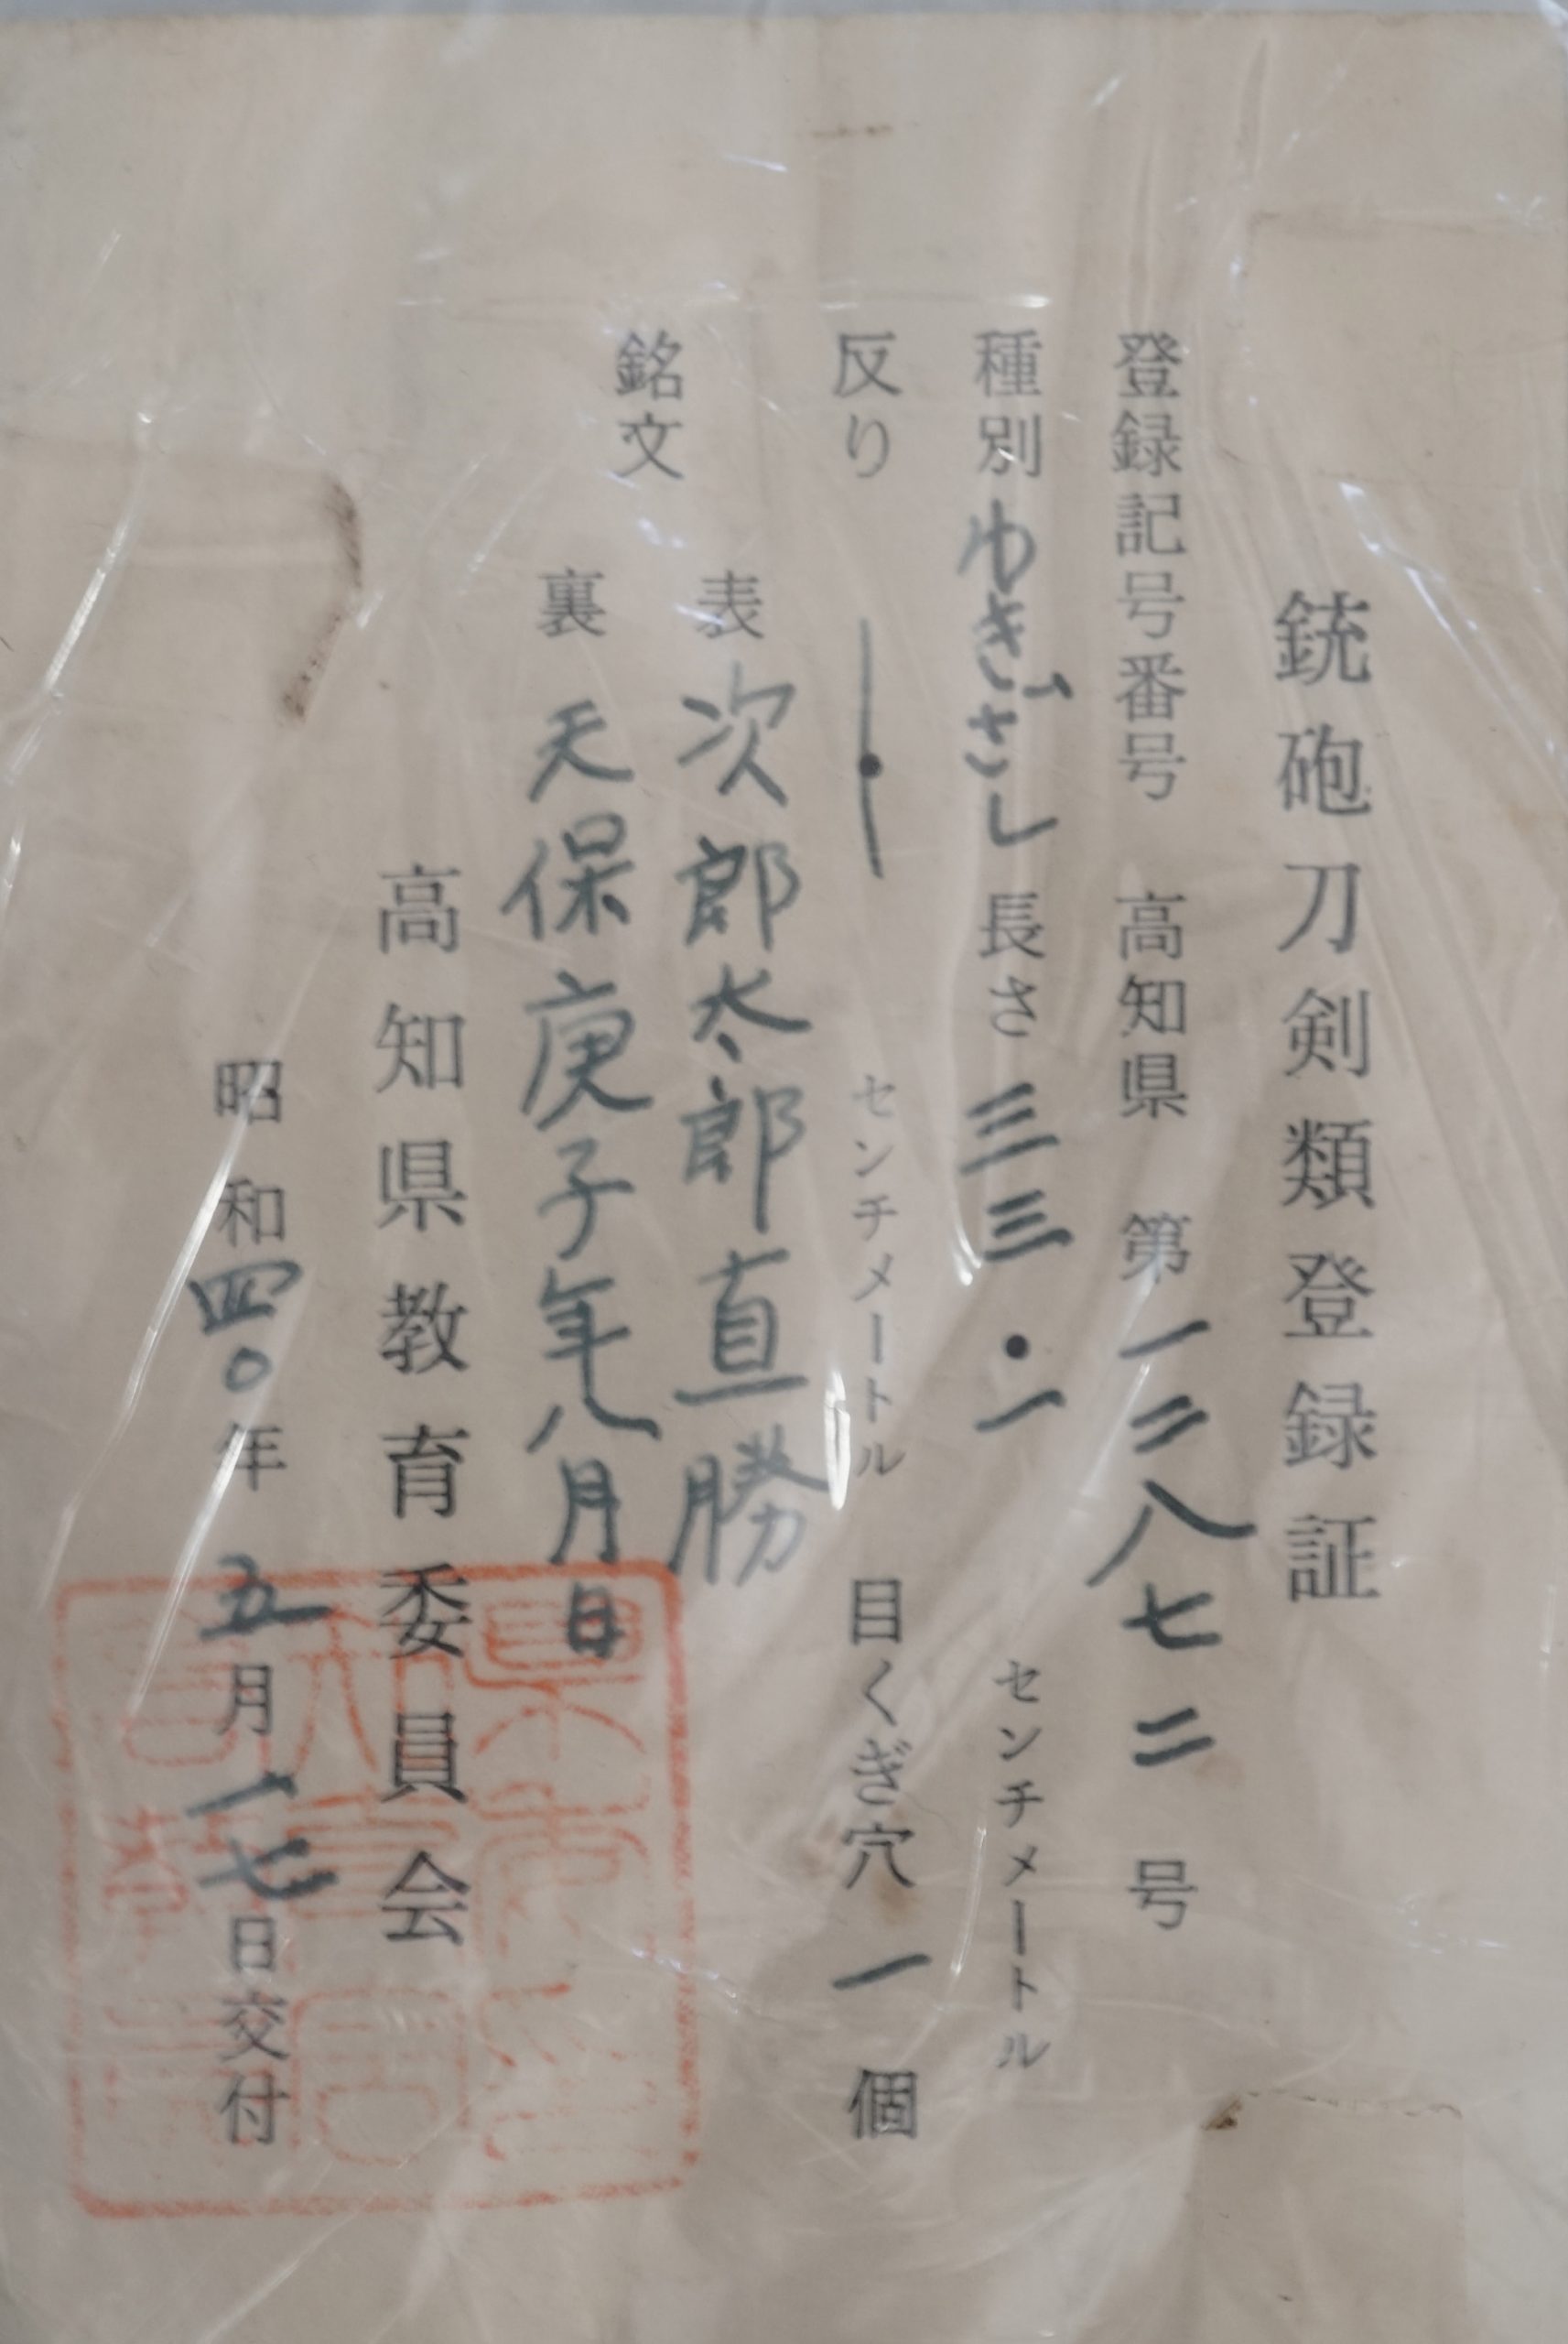 銃砲刀剣類登録証
登録記号番号 高知県 第一三八七二号
種別 わきざし 長さ 三三・一 センチメートル
反り ー・ー センチメートル 目くぎ穴 一 個
銘文
表 次郎太郎直勝
裏 天保庚子年八月日
高知県教育委員会
昭和四〇年五月一七日交付